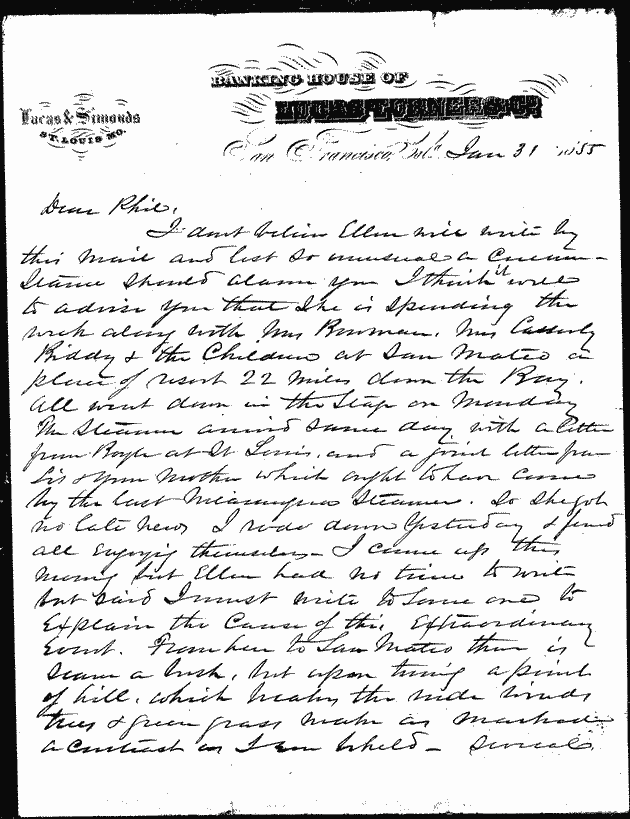 BANKING HOUSE OF
LUCAS TURNER & Co.
Lucas & Simonds
ST. LOUIS MO.
San Francisco, Cal. Jan 31 1855
Dear Phil,
I dont believe Ellen will write by
this mail and lest so unusual a circum-
stance should alarm you I think it well
to advise you that she is spending the
week along with Mrs Bowman, Mrs Casserly
Biddy & the Children at San Mateo a
place of resort 22 miles down the Bay.
All went down in the Stage on Monday
The Steamer arrived same day with a letter
from Boyle at St Louis, and a joint letter from
Sis & your mother which ought to have come
by the last Nicaragua Steamer. So she got
no late news. I rode down Yesterday & found
all enjoying themselves - I came up this
morning but Ellen had no time to write
but said I must write to some one to
Explain the Cause of this Extraordinary
Event. From here to San Mateo there is
scarce a bush, but upon turning a point
of hill, which breaks the winds
trees & green grass make as marked
a contrast as I ever beheld - several